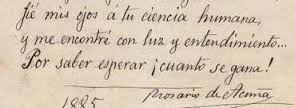 fié mis ojos á tu ciencia humana,
y me encontré con luz y entendimiento...
Por saber esperar ¡cuanto se gana!
Rosario de Acuña
1885